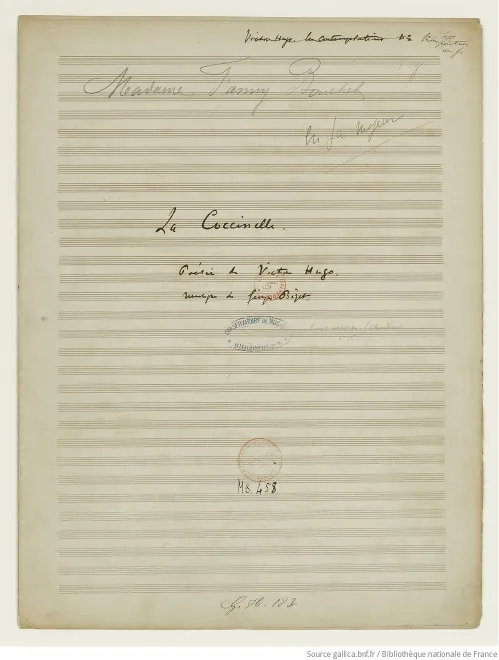 Victor Hugo. Les Contemplations
Madame Fanny Bouchet
en fa majeur
La Coccinelle.
Poésie de Victor Hugo.
musique de Georges Bizet
CONSERVATOIRE DE MUSIQUE
BIBLIOTHÈQUE
Ms. 458
G. H. 183
Source gallica.bnf.fr / Bibliothèque nationale de France